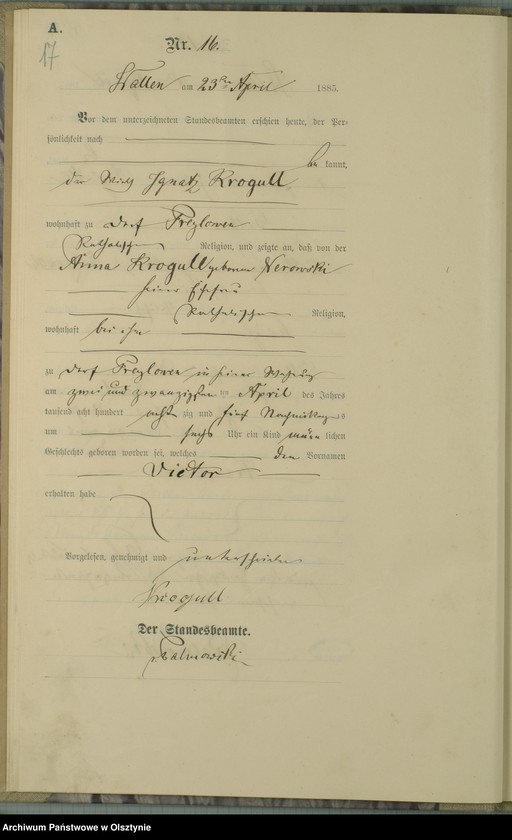 A.
17
Nr. 16.
Wallen am 23ten April 1885.
Vor dem unterzeichneten Standesbeamten erschien heute, der Per-
sönlichkeit nach
be kannt,
der Wirth Ignatz Krogull
wohnhaft zu Dorf
Katholischer Religion, und zeigte an, daß von der
Anna Krogull geborenen Nerowski
seiner Ehefrau
Katholischer Religion,
wohnhaft bei ihm
zu Dorf in seiner Wohnung
am zwei und zwanzigsten April des Jahres
tausend acht hundert achtzig und fünf Nachmittags
um sechs Uhr ein Kind männlichen
Geschlechts geboren worden sei, welches den Vornamen
Victor
erhalten habe
Vorgelesen, genehmigt und unterschrieben
Krogull
Der Standesbeamte.
Archiwum Państwowe w Olsztynie